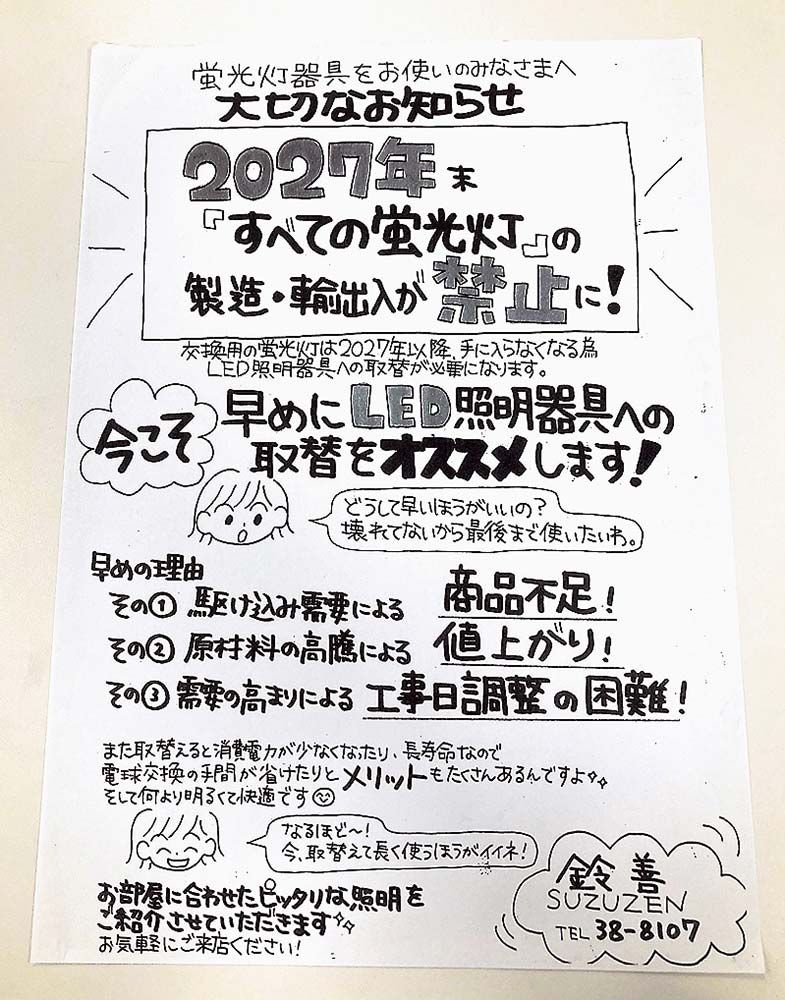 蛍光灯器具をお使いのみなさまへ
大切なお知らせ
2027年末
『すべての蛍光灯』の
製造・輸出入が禁止に!
交換用の蛍光灯は2027年以降、手に入らなくなる為
LED照明器具への取替が必要になります。
今こそ
早めにLED照明器具への
取替をオススメします!
どうして早いほうがいいの?
壊れてないから最後まで使いたいわ。
早めの理由
その① 駆け込み需要による 商品不足!
その② 原材料の高騰による 値上がり!
その③ 需要の高まりによる 工事日調整の困難!
また取替えると消費電力が少なくなったり、長寿命なので
電球交換の手間が省けたりとメリットもたくさんあるんですよ
そして何より明るくて快適です
なるほど~!
今、取替えて長く使うほうがイイネ!
お部屋に合わせたピッタリな照明を
ご紹介させていただきます
お気軽にご来店ください!
鈴善
SUZUZEN
TEL 38-8107